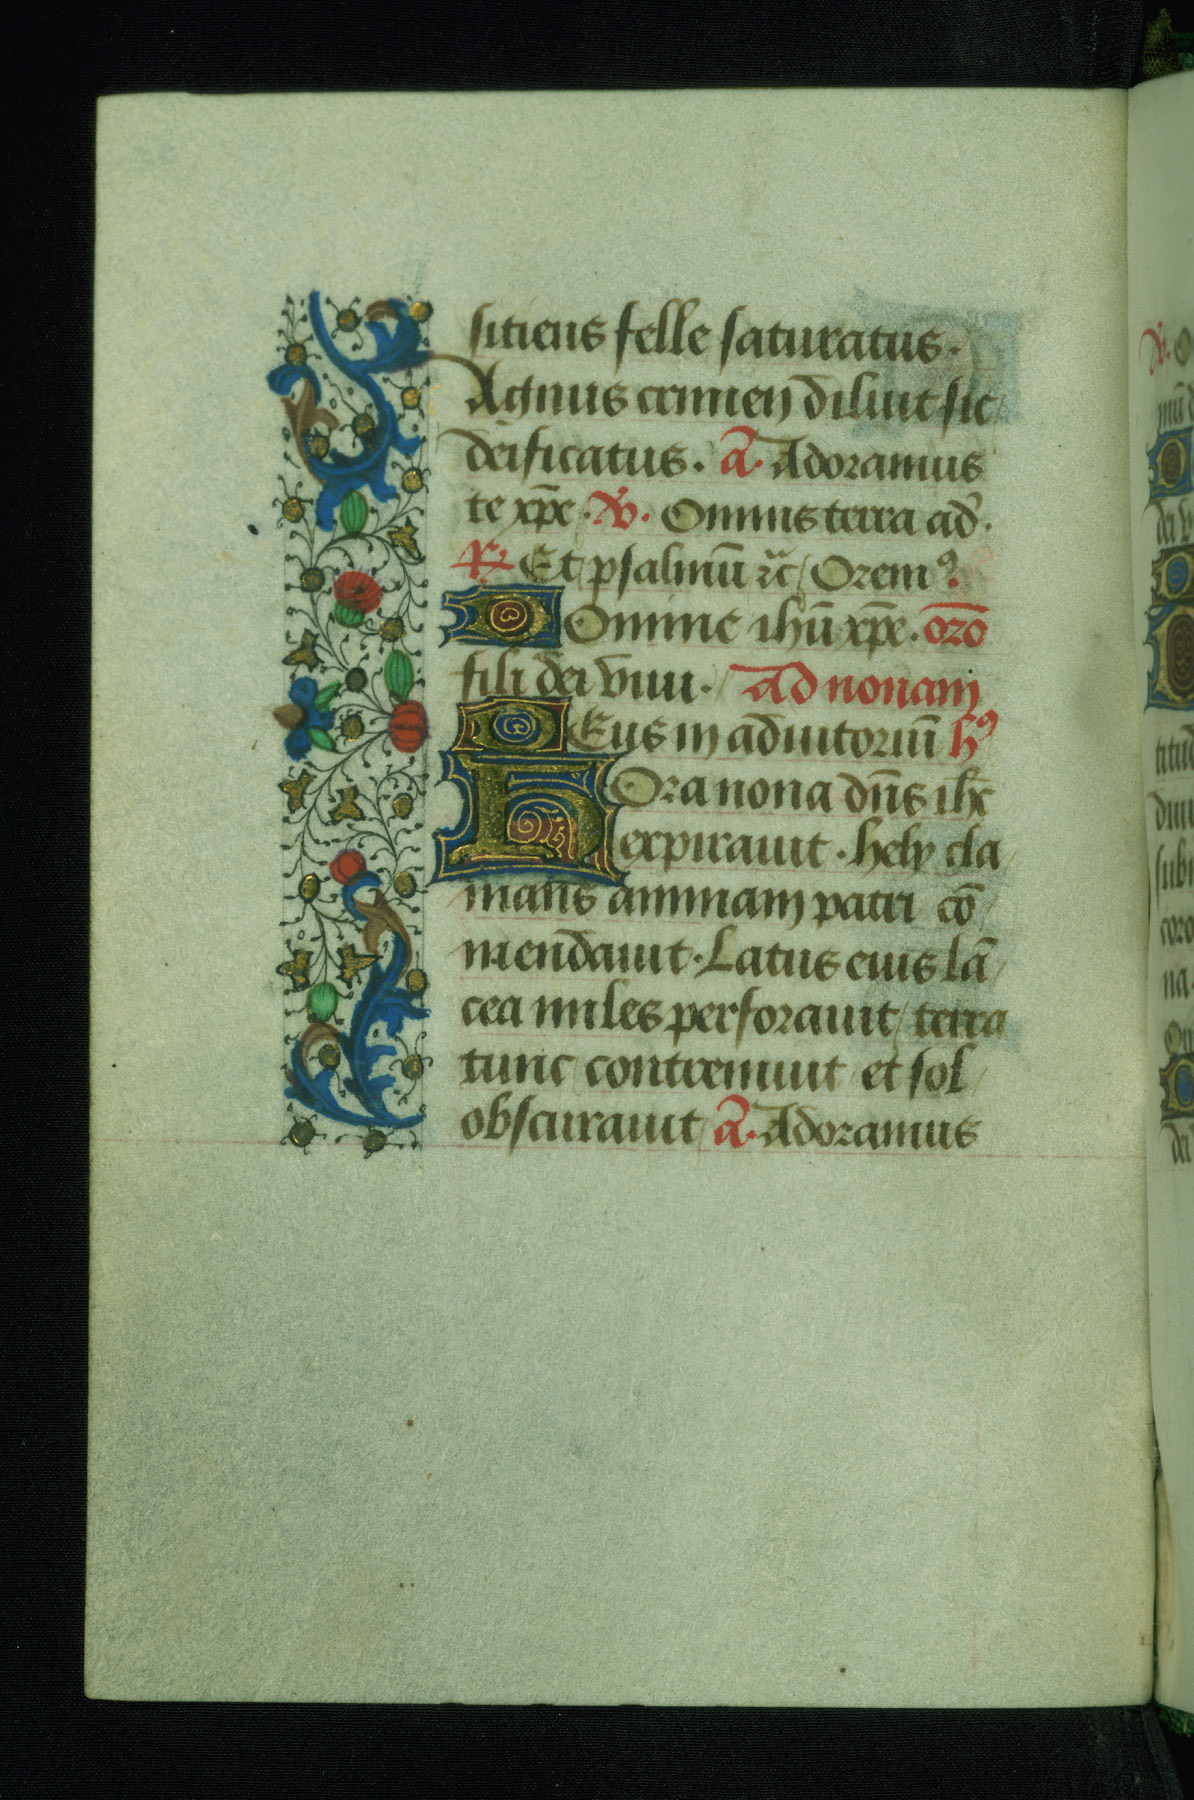 sitiens felle saturatus.
Agnus crimen diluit sic
deificatus. a̅. Adoramus
te xp̅e. ℣. Omnis terra ad̅.
℟ Et psalmu̅ ⁊c̅ / Oremꝰ.
Domine ihu̅ xp̅e. or̅o
fili dei viui. Ad nonam
Deus in adiutoriu̅ hꝰ
Hora nona dn̅s ihc̅
expirauit. hely cla
mans animam patri co̅
mendauit. Latus eius la̅
cea miles perforauit / terra
tunc contremuit et sol
obscurauit a̅. Adoramus